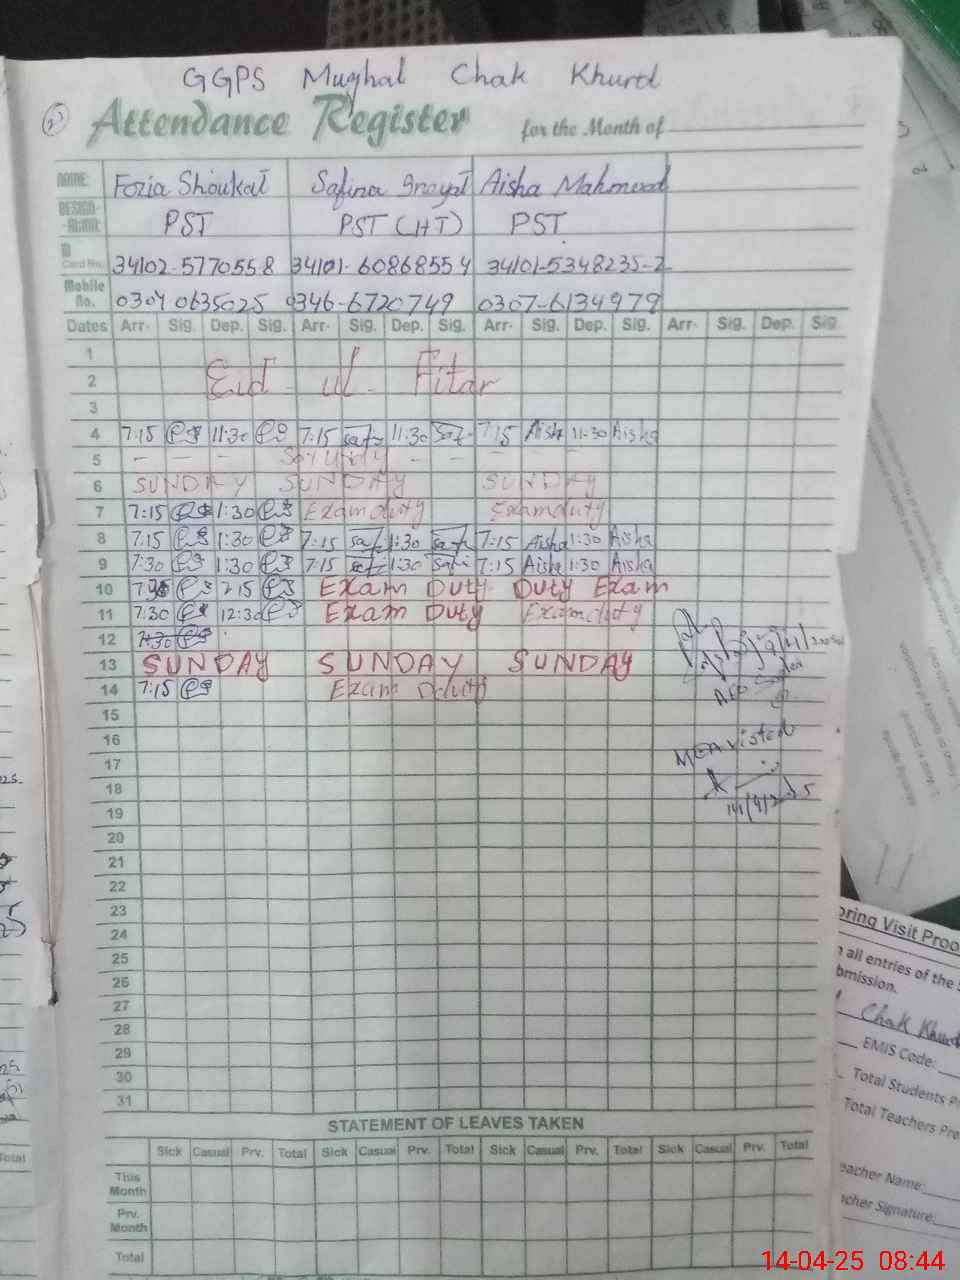 GGPS Mughal Chak Khurd
Attendance Register for the Month of
NAME: Fozia Shoukat Safina Inayat Aisha Mahmood
DESIGN- PST PST (HT) PST
ID Card No. 34102-5770558 34101-60868554 34101-5348235-2
Mobile No. 0304 0635025 0346-6720749 0307-6134979
Dates Arr. Sig. Dep. Sig. Arr. Sig. Dep. Sig. Arr. Sig. Dep. Sig. Arr. Sig. Dep. Sig
1
2 Eid - ul - Fitar
3
4 7:15 11:30 7:15 11:30 7:15 Aisha 11:30 Aisha
5 - -
6 SUNDAY SUNDAY SUNDAY
7 7:15 1:30 Exam duty Exam duty
8 7:15 1:30 7:15 1:30 7:15 Aisha 1:30 Aisha
9 7:30 1:30 7:15 1:30 7:15 Aisha 1:30 Aisha
10 Exam Duty Duty Exam
11 7:30 12:30 Exam Duty Exam duty
12 7:30
13 SUNDAY SUNDAY SUNDAY
14 7:15 Exam duty
15
16
MEA visited
17
18
14/4/2025
19
20
21
22
23
24
25
26
27
28
29
30
31
STATEMENT OF LEAVES TAKEN
Sick Casual Prv. Total Sick Casual Prv. Total Sick Casual Prv. Total Sick Casual Prv. Total
This Month
Prv. Month
Total
oring Visit Proo
all entries of the
bmission.
Chak Khurd
EMIS Code:
Total Students Pr
Total Teachers Pre
eacher Name:
cher Signature:
14-04-25 08:44